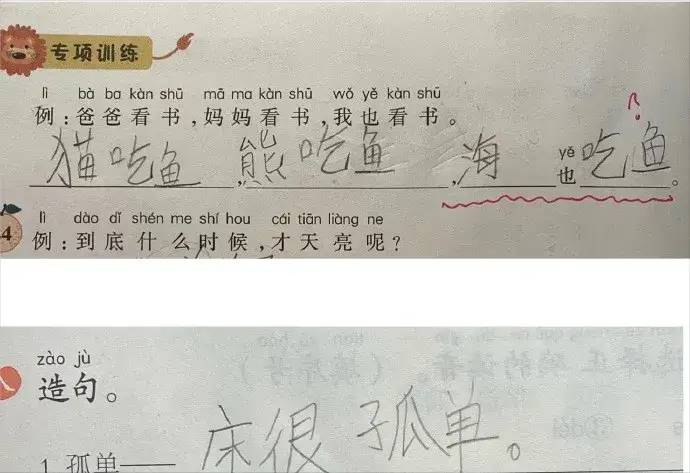 专项训练
lì bà ba kàn shū mā ma kàn shū wǒ yě kàn shū
例：爸爸看书，妈妈看书，我也看书。
猫吃鱼，熊吃鱼，海 yě 也吃鱼。
lì dào dǐ shén me shí hou cái tiān liàng ne
4 例：到底什么时候，才天亮呢？
zào jù
造句。
1. 孤单——床很孤单。